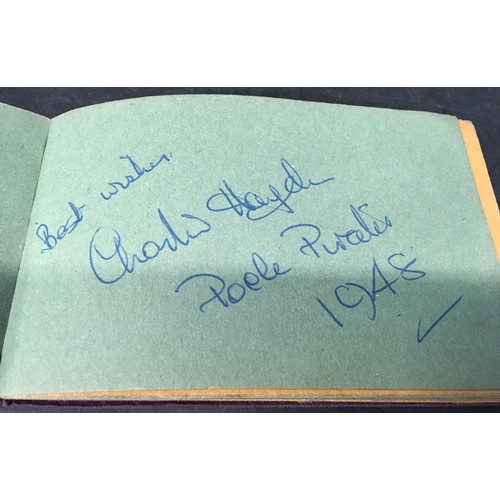 Best wishes
Charlie Hayden
Poole Pirates
1948